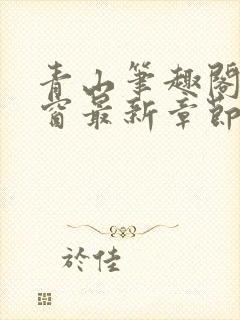 青山筆趣閣
窗最新章節
於佳